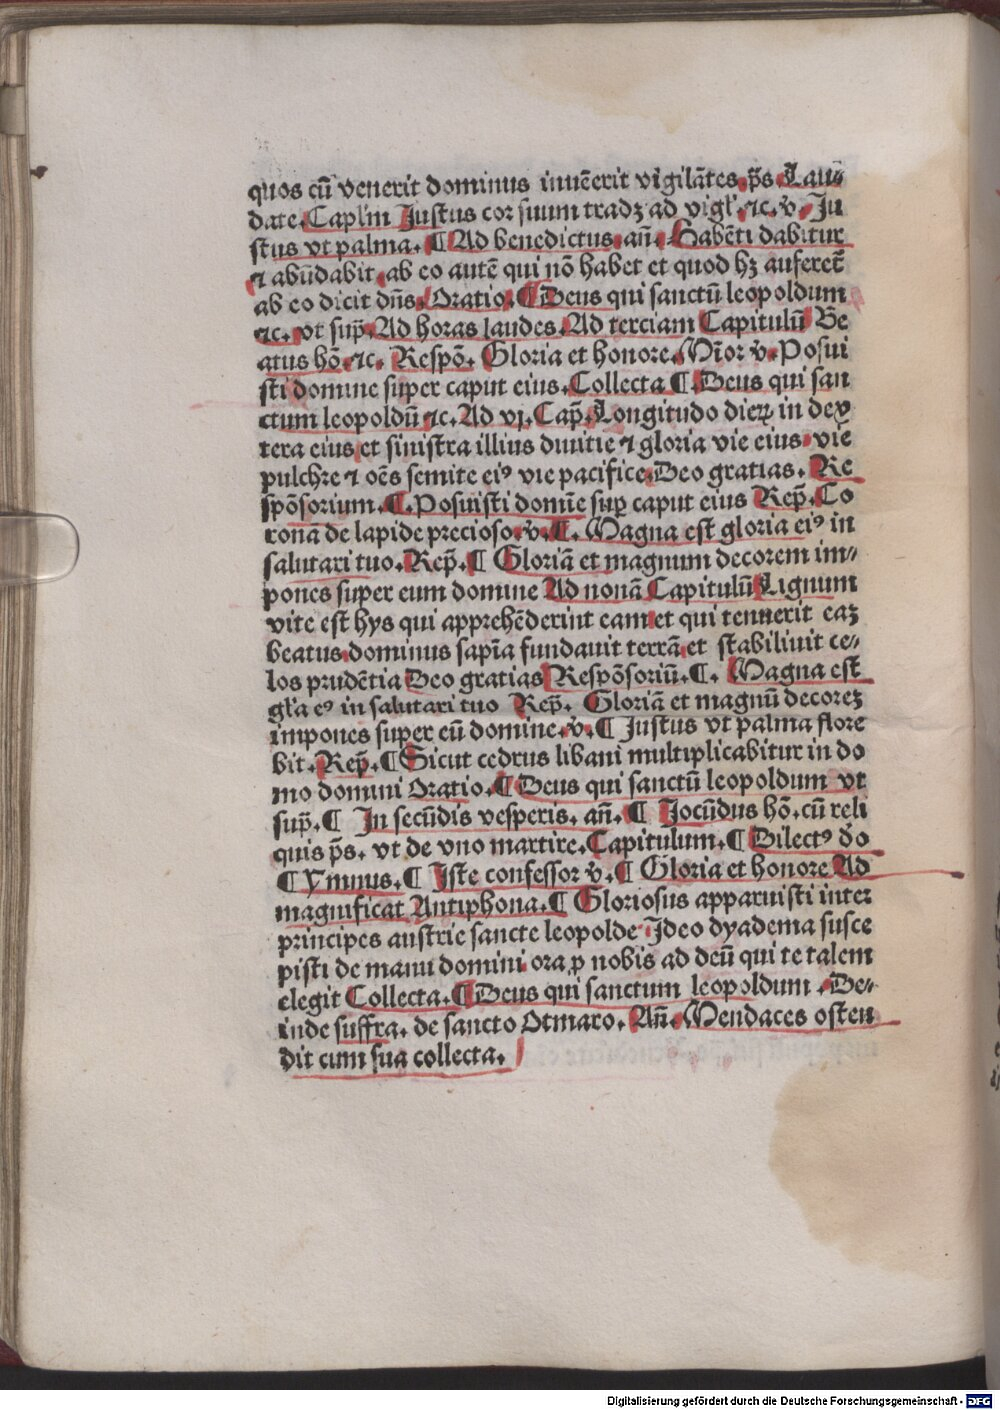 quos cū venerit dominus inuēerit vigilātes p̄s Lau⸗
date. Capl'm Justus cor suum tradꝫ ad vigl'. ⁊c. v̄. Ju
stus vt palma. ¶ Ad benedictus añ. Habēti dabitur
⁊ abūdabit ab eo autē qui nō habet et quod hꝫ auferet̄
ab eo dicit dn̄s Oratio. ¶ Deus qui sanctū leopoldum
⁊c. vt sup̄. Ad horas laudes. Ad terciam Capitulū Be
atus hō. ⁊c. Respō. Gloria et honore. Mi̅or v̄. Posui
sti domine super caput eius. Collecta ¶. Deus qui san
ctum leopoldū ⁊c. Ad vj. Cap̄. Longitudo dieꝝ in dex
tera eius et sinistra illius diuitie ⁊ gloria vie eius vie
pulchre ⁊ oēs semite eiꝰ vie pacifice Deo gratias. Re
spōsorium. ¶. Posuisti domīe suꝑ caput eius Rep̄. Co
ronā de lapide precioso. v̄. ¶. Magna est gloria eiꝰ in
salutari tuo. Rep̄. ¶ Gloriā et magnum decorem im⸗
pones super eum domine Ad nonā Capitulū Lignum
vite est hys qui apprehēderint eam et qui tenuerit eaꝫ
beatus dominus sapīa fundauit terrā et stabiliuit ce⸗
los prudētia Deo gratias Respōsoriū. ¶. Magna est
gl'a eꝰ in salutari tuo Rep̄. Gloriā et magnū decoreꝫ
impones super eū domine. v̄. ¶ Justus vt palma flore
bit. Rep̄. ¶ Sicut cedrus libani multiplicabitur in do
mo domini Oratio. ¶ Deus qui sanctū leopoldum vt
sup̄. ¶ In secūdis vesperis. añ. ¶ Jocūdus hō. cū reli
quis p̄s. vt de vno martire. Capitulum. ¶ Dilectꝰ d̄o
¶ Ymnus. ¶ Iste confessor v̄. ¶ Gloria et honore Ad
magnificat Antiphona. ¶ Gloriosus apparuisti inter
principes austrie sancte leopolde Ideo dyadema susce
pisti de manu domini ora ꝓ nobis ad deū qui te talem
elegit Collecta. ¶ Deus qui sanctum leopoldum. De⸗
inde suffra. de sancto Otmaro. Añ. Mendaces osten
dit cum sua collecta.
Digitalisierung gefördert durch die Deutsche Forschungsgemeinschaft - DFG